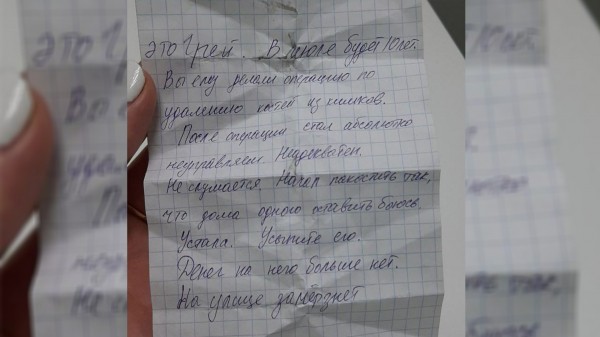 Это Грей. В июле будет 10 лет.
Вы ему делали операцию по
удалению когтей из кишков.
После операции стал абсолютно
неуправляем. Неадекватен.
Не слушается. Начал пакостить так,
что дома одного оставить боюсь.
Устала. Усыпите его.
Денег на него больше нет.
На улице замёрзнет